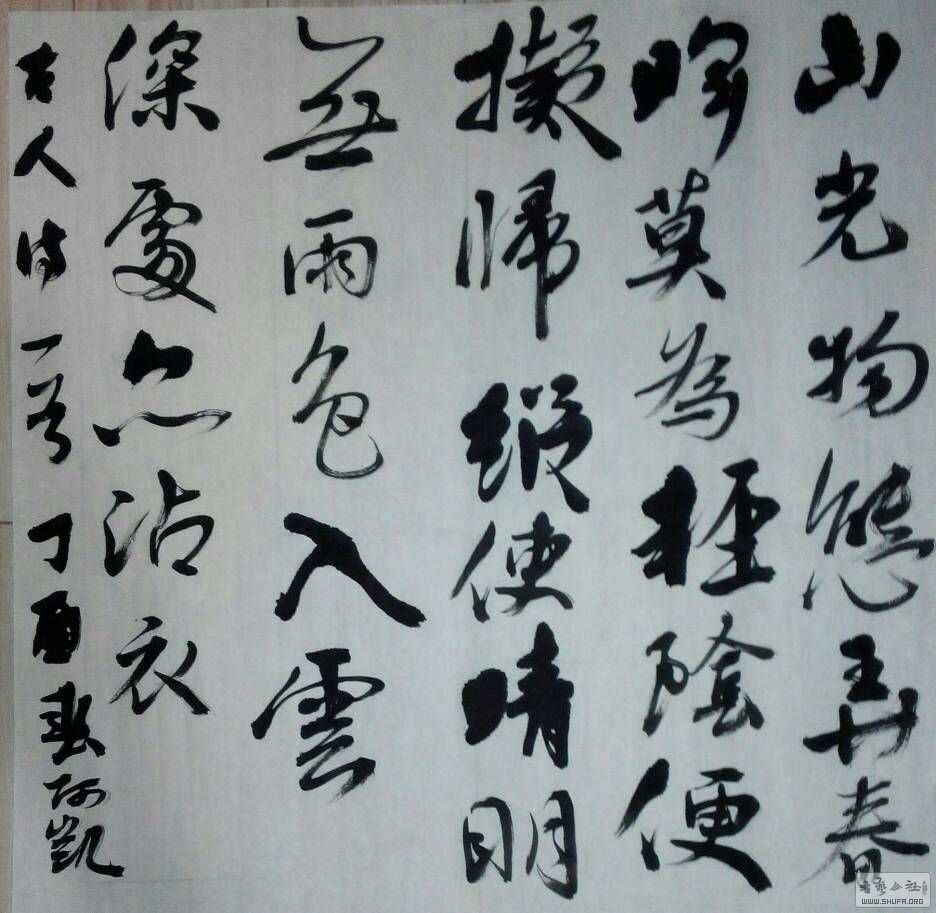 山光物態弄春
暉莫為輕陰便
擬歸縱使晴明
無雨色入雲
深處亦沾衣
古人詩一首丁酉春阿凱
書藝公社
WWW.SHUFA.ORG